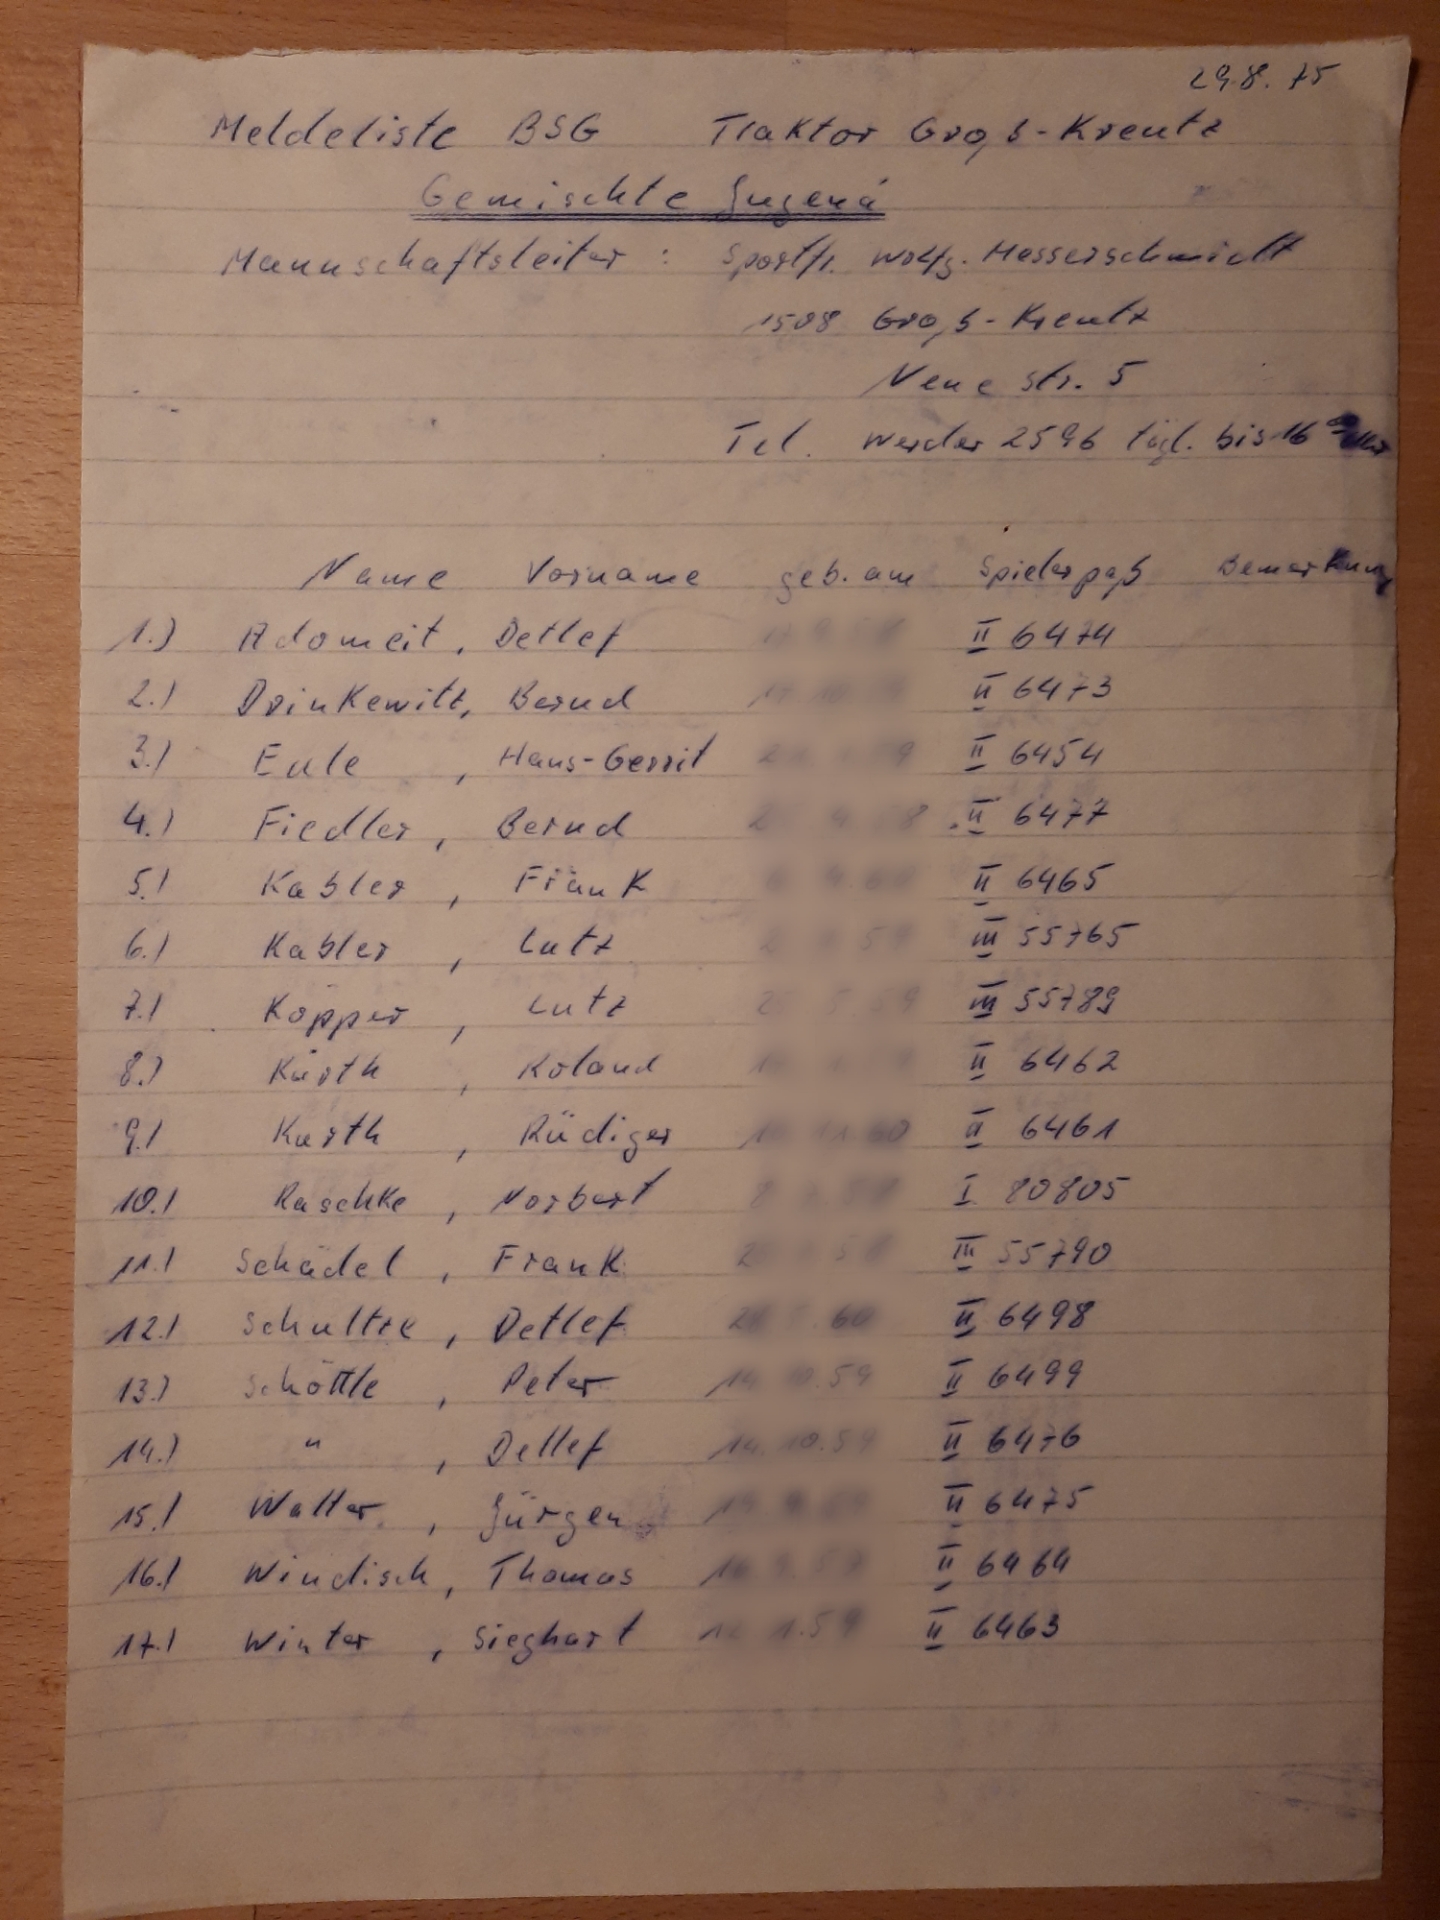 29.8.75
Meldeliste BSG Traktor Groß-Kreutz
Gemischte Jugend
Mannschaftsleiter : Sportfr. Wolfg. Messerschmidt
1508 Groß-Kreutz
Neue Str. 5
Tel. Werder 2596 tägl. bis 16 00 Uhr
Name Vorname geb. am Spielerpaß Bemerkung
1.) Adomeit, Detlef II 6474
2.) Drinkewitz, Bernd II 6473
3.) Eule, Hans-Gerrit II 6454
4.) Fiedler, Bernd II 6477
5.) Kabler, Frank II 6465
6.) Kabler, Lutz III 55765
7.) Köpper, Lutz III 55789
8.) Kurth, Roland II 6462
9.) Kurth, Rüdiger II 6461
10.) Raschke, Norbert I 80805
11.) Schädel, Frank III 55790
12.) Schultze, Detlef II 6498
13.) Schöttle, Peter II 6499
14.) " , Detlef II 6476
15.) Walter, Jürgen II 6475
16.) Windisch, Thomas II 6464
17.) Winter, Sieghart II 6463